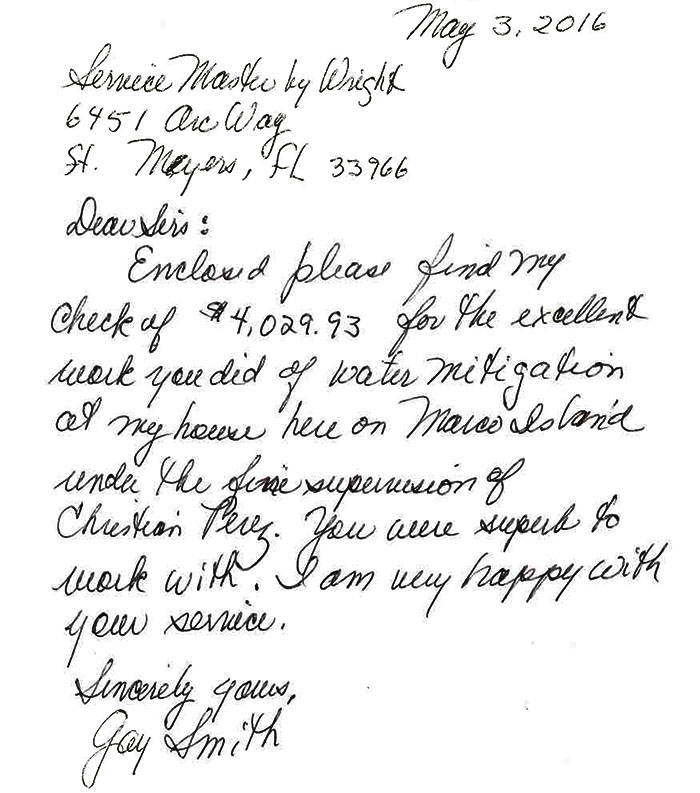 May 3, 2016
Service Master by Wright
6451 Arc Way
Ft. Meyers, FL 33966
Dear Sirs:
Enclosed please find my
check of $4,029.93 for the excellent
work you did of water mitigation
at my house here on Marco Island
under the fine supervision of
Christian Perez. You were superb to
work with. I am very happy with
your service.
Sincerely yours,
Gay Smith